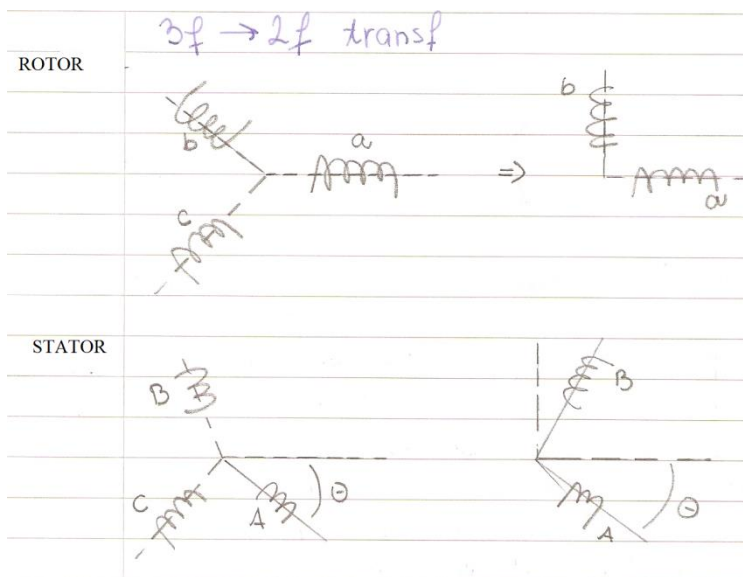 3f → 2f transf
ROTOR
b
a
c
⇒
b
a
STATOR
B
C
A
Θ
B
A
Θ